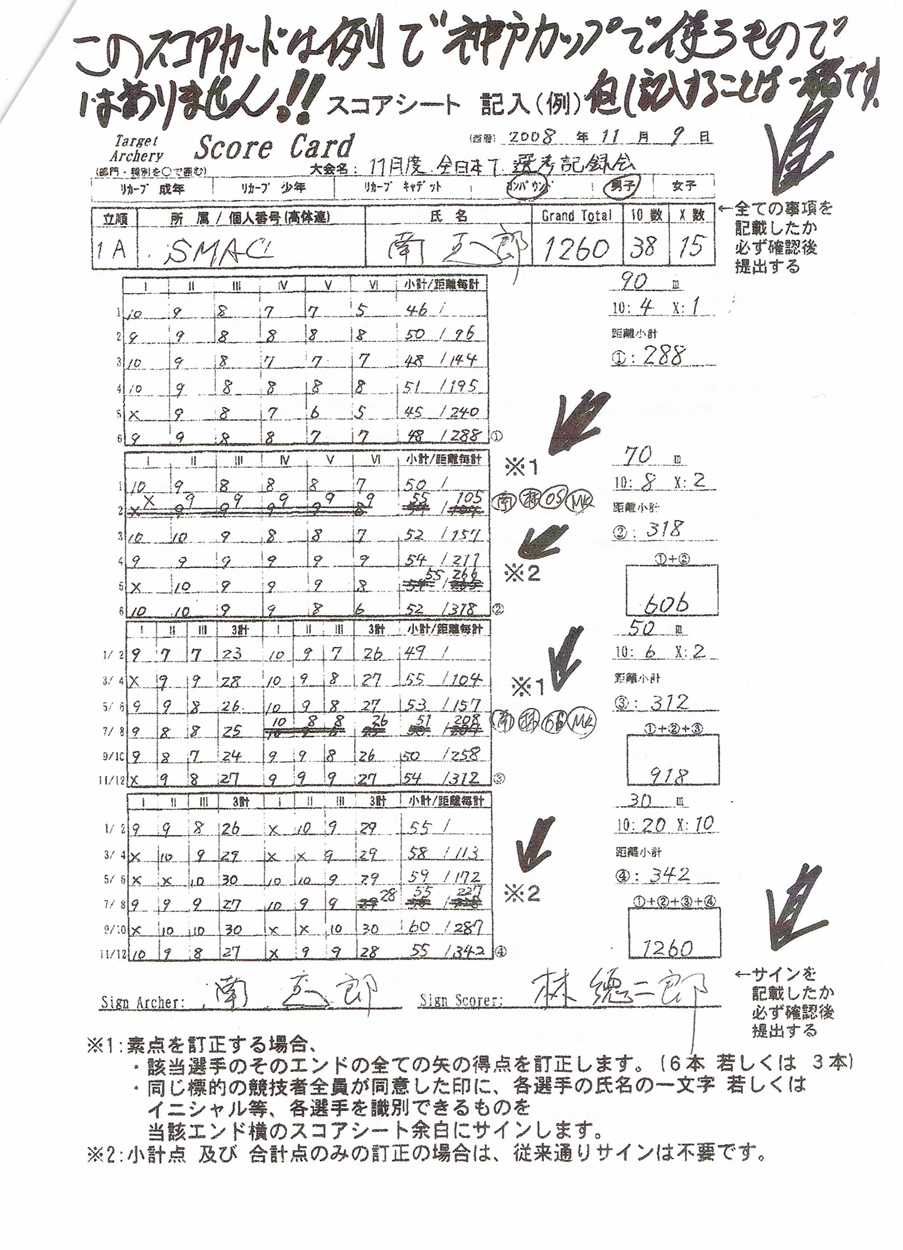 このスコアカードは例で"神戸カップで使うもので
はありません!! スコアシート 記入(例) 但し記入することは一緒です.
Target Archery Score Card (西暦) 2008 年 11 月 9 日
(部門・種別を○で囲む) 大会名: 11月度 全日本T 選考記録会
リカーブ 成年 リカーブ 少年 リカーブ キャデット コンパウンド 男子 女子
立順 所 属 / 個人番号(高体連) 氏 名 Grand Total 10 数 X 数
1A SMAC 南 五郎 1260 38 15
←全ての事項を
記載したか
必ず確認後
提出する
I II III IV V VI 小計/距離毎計
1 10 9 8 7 7 5 46 /
2 9 9 8 8 8 8 50 / 96
3 10 9 8 7 7 7 48 / 144
4 10 9 8 8 8 8 51 / 195
5 X 9 8 7 6 5 45 / 240
6 9 9 8 8 7 7 48 / 288 ①
90 m
10: 4 X: 1
距離小計
①: 288
I II III IV V VI 小計/距離毎計
1 10 9 8 8 8 7 50 /
X 9 9 9 9 9 55 105
2 X 9 9 9 9 8
3 10 10 9 8 8 7 52 / 157
4 9 9 9 9 9 9 54 / 211
55 266
5 X 10 9 9 9 8
6 10 10 9 9 8 6 52 / 318 ②
※1
南 林 OS MK
※2
70 m
10: 8 X: 2
距離小計
②: 318
①+②
606
I II III 3計 I II III 3計 小計/距離毎計
1/ 2 9 7 7 23 10 9 7 26 49 /
3/ 4 X 9 9 28 10 9 8 27 55 / 104
5/ 6 9 9 8 26 10 9 8 27 53 / 157
10 8 8 26 51 208
7/ 8 9 8 8 25
9/10 9 8 7 24 9 9 8 26 50 / 258
11/12 X 9 8 27 9 9 9 27 54 / 312 ③
※1
南 林 OS MK
50 m
10: 6 X: 2
距離小計
③: 312
①+②+③
918
I II III 3計 I II III 3計 小計/距離毎計
1/ 2 9 9 8 26 X 10 9 29 55 /
3/ 4 X 10 9 29 X X 9 29 58 / 113
5/ 6 X X 10 30 10 10 9 29 59 / 172
28 55 227
7/ 8 9 9 9 27 10 9 9
9/10 X 10 10 30 X X 10 30 60 / 287
11/12 10 9 8 27 X 9 9 28 55 / 342 ④
※2
30 m
10: 20 X: 10
距離小計
④: 342
①+②+③+④
1260
Sign Archer: 南 五郎 Sign Scorer: 林 徳二郎
←サインを
記載したか
必ず確認後
提出する
※1:素点を訂正する場合、
・該当選手のそのエンドの全ての矢の得点を訂正します。(6本 若しくは 3本)
・同じ標的の競技者全員が同意した印に、各選手の氏名の一文字 若しくは
イニシャル等、各選手を識別できるものを
当該エンド横のスコアシート余白にサインします。
※2:小計点 及び 合計点のみの訂正の場合は、従来通りサインは不要です。